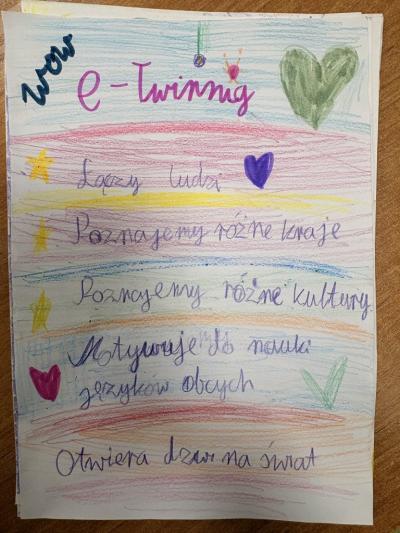 wow
e-Twinnig
Łączy ludzi
Poznajemy różne kraje
Poznajemy różne kultury
Motywuje do nauki
języków obcych
Otwiera dzwi na świat